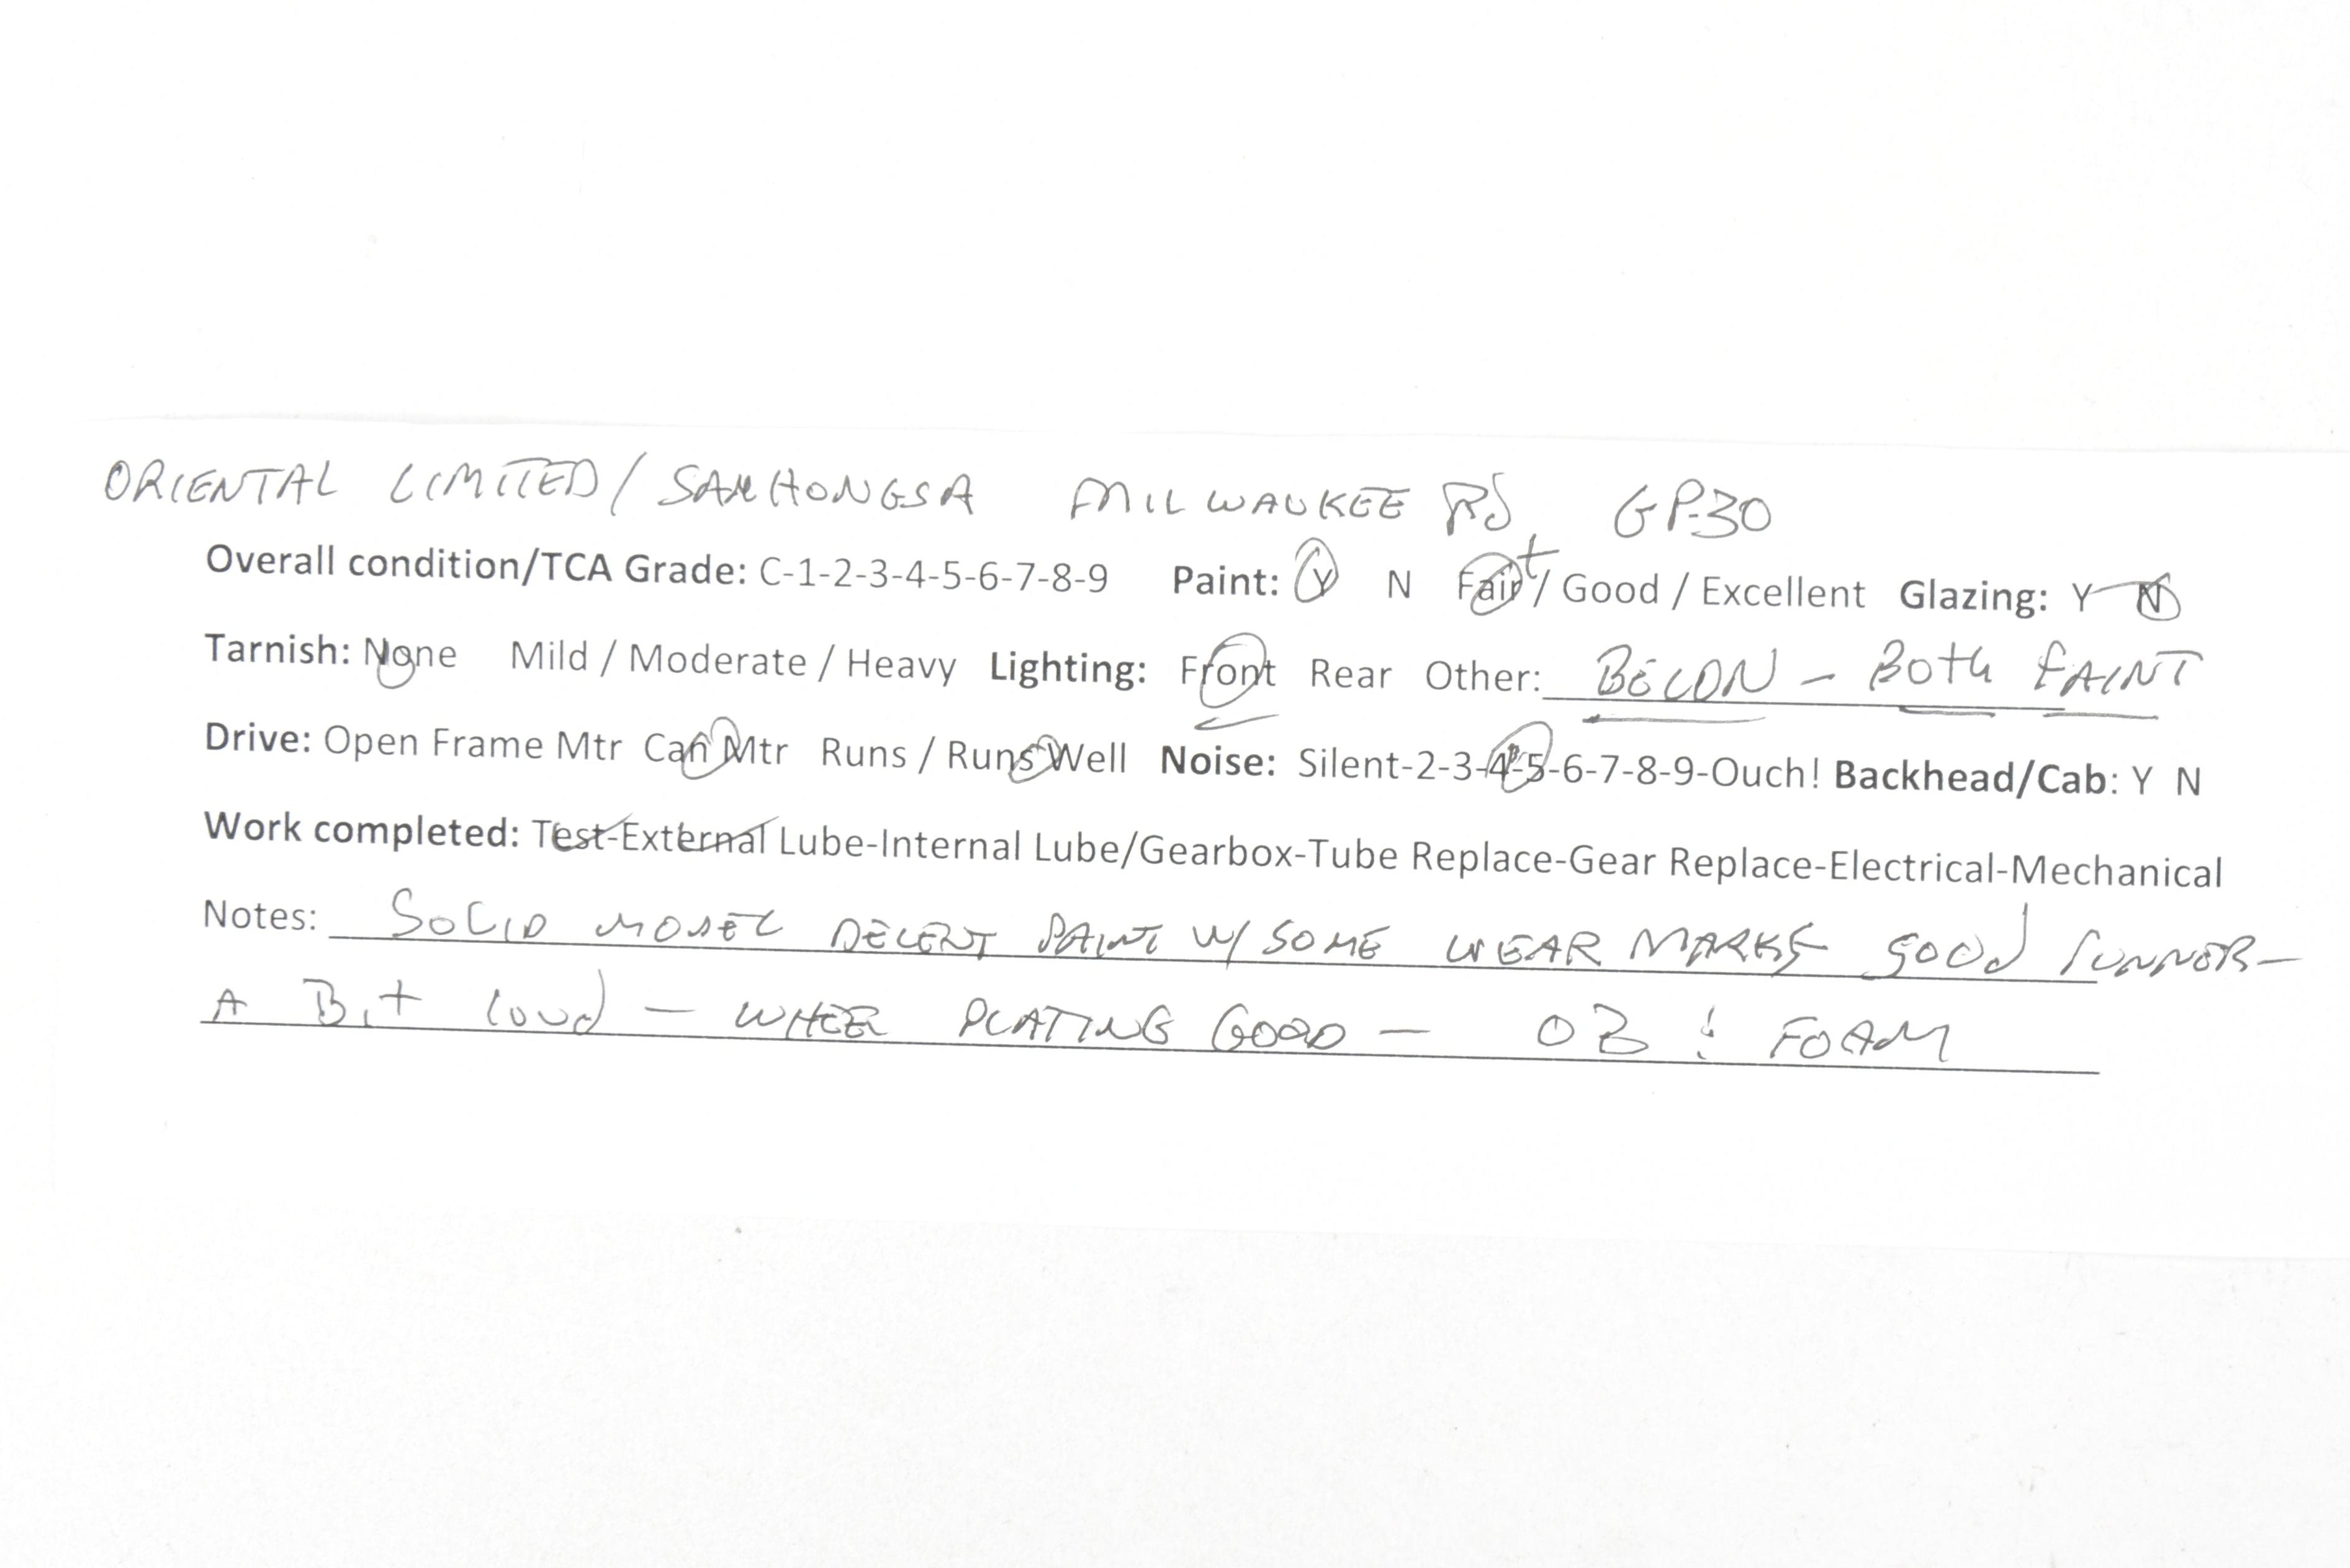 ORIENTAL LIMITED / SAMHONGSA MILWAUKEE RD GP-30
Overall condition/TCA Grade: C-1-2-3-4-5-6-7-8-9 Paint: Y N Fair+ / Good / Excellent Glazing: Y N
Tarnish: None Mild / Moderate / Heavy Lighting: Front Rear Other: BECON - BOTH FAINT
Drive: Open Frame Mtr Can Mtr Runs / Runs Well Noise: Silent-2-3-4-5-6-7-8-9-Ouch! Backhead/Cab: Y N
Work completed: Test-External Lube-Internal Lube/Gearbox-Tube Replace-Gear Replace-Electrical-Mechanical
Notes: SOLID MODEL DECENT PAINT W/ SOME WEAR MARKS GOOD RUNNER -
A Bit loud - WHEEL PLATING GOOD - OB & FOAM